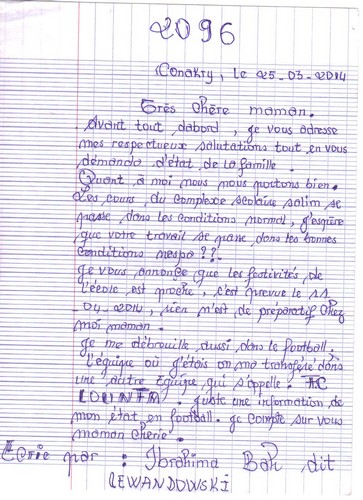 2096
Conakry, Le 25-03-2014
Très chère maman.
Avant tout dabord, je vous adresse
mes respectueux salutations tout en vous
demanda d'état de la famille.
Quant à moi nous nous portons bien.
Les cours du complexe scolaire salim se
passe dans les conditions normal, j'espère
que votre travail se passe dans les bonnes
conditions nespa??
Je vous annonce que les festivités de
l'école est proche, c'est prevue le 11
-04-2014, rien n'est de préparatif chez
moi maman.
Je me débrouille aussi dans le football,
l'équipe où j'étais on ma transféré dans
une autre équipe qui s'appelle : FC
juste une information de
mon état en football. je compte sur vous
maman cherie.
Ecrie par : Ibrahima Bah dit
LEWANDOWSKI